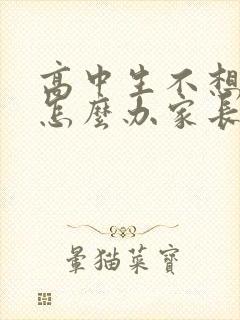 高中生不想
怎麼办家長
暈猫菜寶